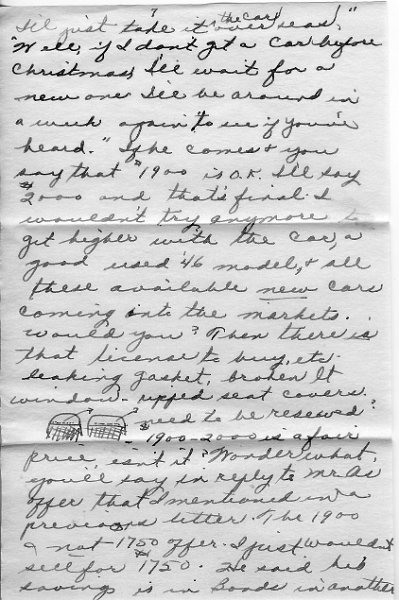 7
I'll just take it (the car) overseas."
"Well, if I don't get a car before
Christmas, I'll wait for a
new one I'll be around in
a week again "to see if you've
heard." If he comes & you
say that "1900 is O.K. I'll say
$2000 and that's final. I
wouldn't try anymore to
get higher with the car, a
good used '46 model, & all
these available new cars
coming into the markets.
Would you? Then there is
that license to buy, etc.
leaking gasket, broken lt
window - ripped seat covers.
need to be resewed?
$1900-2000 is a fair
price isn't it? Wonder what,
you'll say in reply to Mr. A's
offer that I mentioned in a
previous letter. The 1900
& not 1750 offer. I just wouldn't
sell for $1750. He said his
savings is in Bonds in another